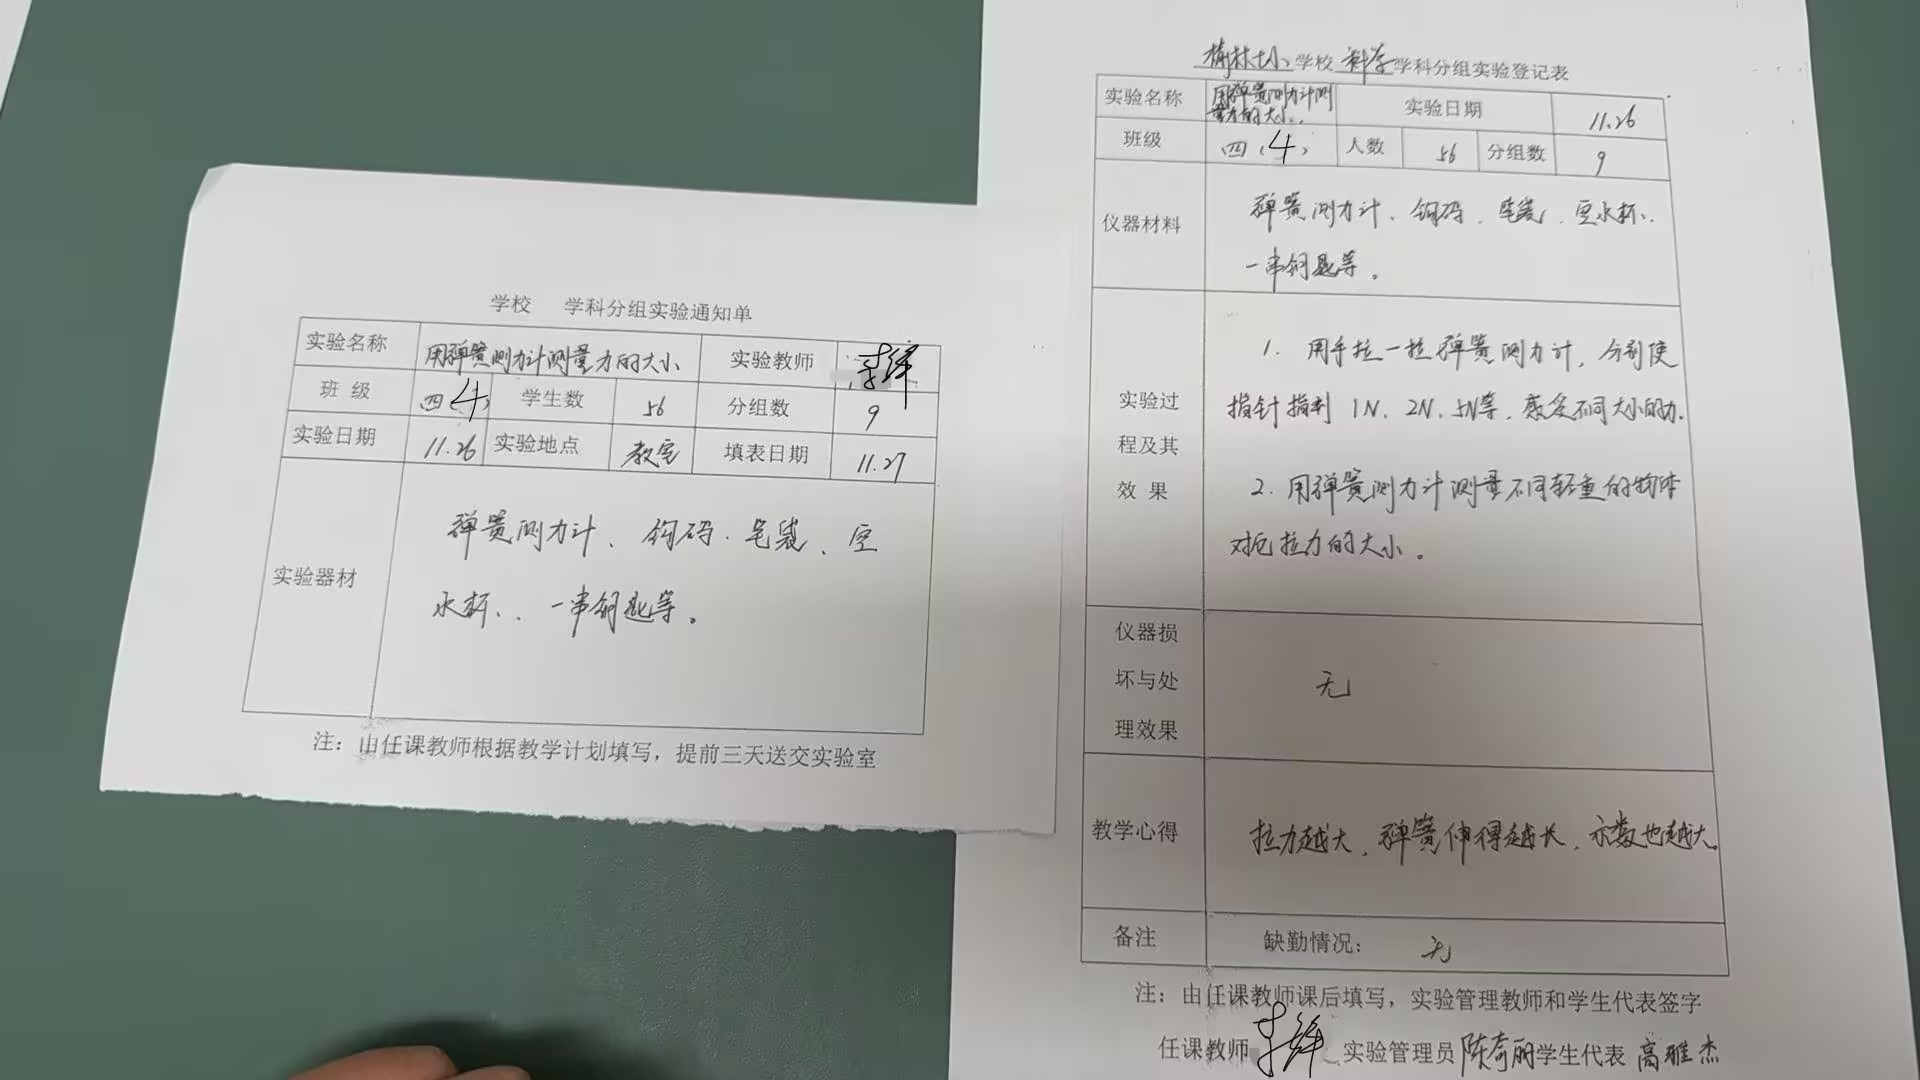 学校 学科分组实验通知单
实验名称 用弹簧测力计测量力的大小 实验教师
班 级 四(4) 学生数 56 分组数 9
实验日期 11.26 实验地点 教室 填表日期 11.27
实验器材
弹簧测力计、钩码、笔袋、空
水杯、、一串钥匙等。
注：由任课教师根据教学计划填写，提前三天送交实验室
榆林七小学校 科学学科分组实验登记表
实验名称 用弹簧测力计测
量力的大小. 实验日期 11.26
班级 四(4) 人数 56 分组数 9
仪器材料
弹簧测力计、钩码、笔袋、空水杯、
一串钥匙等。
实验过
程及其
效 果
1. 用手拉一拉弹簧测力计，分别使
指针指到 1N、2N、5N等，感受不同大小的力.
2. 用弹簧测力计测量不同轻重的物体
对它拉力的大小。
仪器损
坏与处
理效果
无
教学心得
拉力越大，弹簧伸得越长，示数也越大。
备注 缺勤情况： 无
注：由任课教师课后填写，实验管理教师和学生代表签字
任课教师 实验管理员 陈奇丽 学生代表 高雅杰